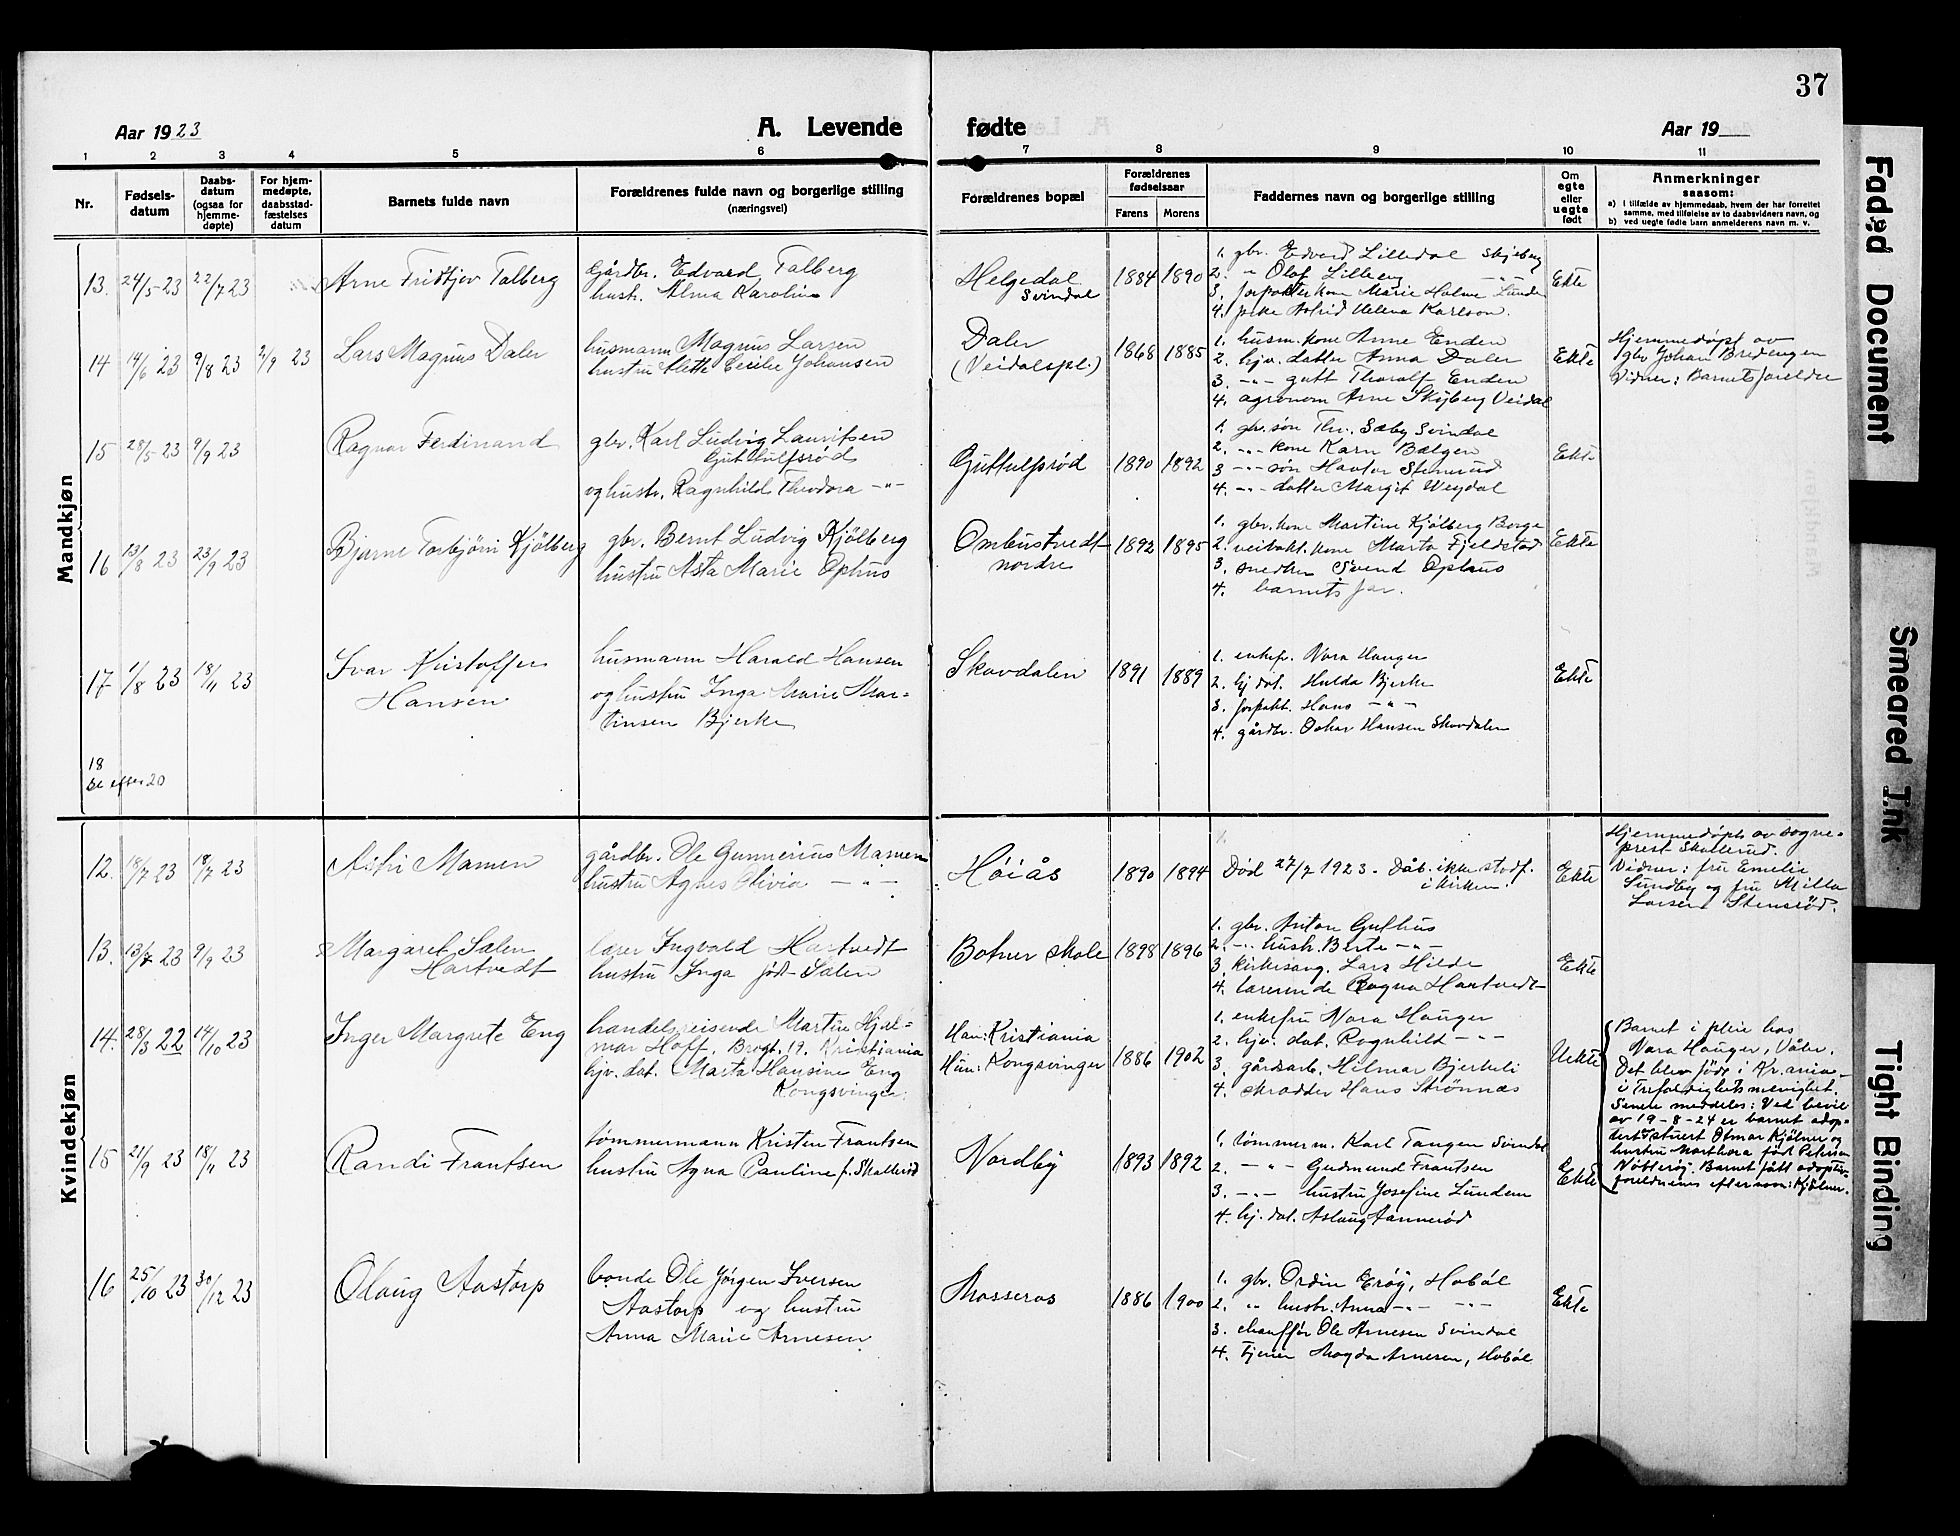 37
Aar 1923 A. Levende fødte Aar 19
1 2 3 4 5 6 7 8 9 10 11
Nr.
Fødsels-
datum
Daabs-
datum
(ogsaa for
hjemme-
døpte)
For hjem-
medøpte,
daabsstad-
fæstelses
datum
Barnets fulde navn
Forældrenes fulde navn og borgerlige stilling
(næringsvei)
Forældrenes bopæl
Forældrenes
fødselsaar
Farens Morens
Faddernes navn og borgerlige stilling
Om
egte
eller
uegte
født
Anmerkninger
saasom:
a) i tilfælde av hjemmedaab, hvem der har forrettet
samme, med tilføielse av to daabsvidners navn, og
b) ved uegte fødte barn anmelderens navn m. v.
Mandkjøn
13. 24/5 23 22/7 23
Arne Fridtjov Talberg
Gårdbr. Edvard Talberg
hustr. Alma Karoline
Helgedal
Svindal
1884 1890
1. gbr. Edvard Lilledal Skjeberg
2. " Olaf Lilleeng
3. forpakter kone Marie Holme Lunde
4. pike Astrid Helena Karlson.
Ekte
14 14/6 23 9/8 23 2/9 23
Lars Magnus Daler
husmann Magnus Larsen
hustru Alette Cecilie Johansen
Daler
(Veidalspl.)
1868 1885
1. husm. kone Anne Enden
2. hjv. datter Anna Daler
3. -"- gutt Thoralf Enden
4. agronom Arne Skjberg Veidal
Ekte
Hjemmedøpt av
gbr Johan Bredengen
Vidner: Barnets foreldre
15 28/5 23 9/9 23
Ragnar Ferdinand
gbr. Karl Ludvig Lauritsen
Guthulfsrød
og hustr. Ragnhild Theodora -"-
Guttulfsrød
1890 1892
1. gbr. søn Thv. Sæby Svindal
2. -"- kone Karn Bælgen
3 -"- søn Havtor Stenerud
4. -"- datter Margit Weydal
Ekte
16 13/8 23 23/9 23
Bjarne Torbjørn Kjølberg
gbr. Bernt Ludvig Kjølberg
hustru Asta Marie Ophus
Ombustvedt
nordre
1892 1895
1. gbr. kone Martine Kjølberg Borge
2. veivakt. kone Marta Fjeldstad
3. snedker Svend Ophus
4. barnets far.
Ekte
17 1/8 23 18/11 23
Ivar Kristoffer
Hansen
husmann Harald Hansen
og hustru Inga Marie Mar-
tinsen Bjerke
Skovdalen
1891 1889
1. enkefr. Nora Hauger
2. hj dat. Hulda Bjerke
3. forpakt. Hans -"-
4. gårdbr. Oskar Hansen Skovdalen
Ekte
18
se efter 20
Kvindekjøn
12. 18/7 23 18/7 23
Astri Mamen
gårdbr. Ole Gunnerius Mamen
hustru Agnes Olivia -"-
Høiås
1890 1894
Død 27/7 1923. Dåb. ikke stadf.
i kirken.
Ekte
Hjemmedøpt av sogne-
prest Skallerud.
Vidner: fru Emelie
Sundby og fru Milla
Larsen Stensrød.
13. 13/7 23 9/9 23
Margaret Salen
Hartvedt
lærer Ingvald Hartvedt
hustru Inga født Salen
Botner skole
1898 1896
1. gbr. Anton Guthus
2. -"- hustr. Berte -"-
3. kirkesang. Lars Hilde
4. lærerinde Ragna Hartvedt
Ekte
14. 28/3 22 14/10 23
Inger Margrete Eng
handelsreisende Martin Hjal-
mar Hoff. Brogt. 19. Kristiania
hjv. dat. Marta Hansine Eng
Kongsvinger.
Han: Kristiania
Hun: Kongsvinger
1886 1902
1. enkefru Nora Hauger
2. hjv. dat. Ragnhild -"-
3. gårdsarb. Hilmar Bjerkeli
4. skradder Hans Strønnæs
Uekte
Barnet i pleie hos
Nora Hauger, Våler.
Det blev født i Kr.ania
i Trefoldighets menighet.
Senere meddeles: Ved bevil
av 19-8-24 er barnet adop-
tert Otmar Kjølner og
hustru Marthora født Petersen
Nøtterøy. Barnet fått adoptiv-
foreldrenes efternavn: Kjølner.
15 21/9 23 18/11 23
Randi Frantsen
tømmermann Kristen Frantsen
hustru Agna Pauline f. Skallerud
Nordby
1893 1892
1. tømmerm. Karl Tangen Svindal
2. -"- Gudmund Frantsen
3. -"- hustru Josefine Lundem
4. hj. dat. Aslaug Aannerød
Ekte
16 25/10 23 30/12 23
Olaug Aastorp
bonde Ole Jørgen Iversen
Aastorp og hustru
Anna Marie Arnesen
Mosseros
1886 1900
1. gbr. Ordin Erøy, Hobøl
2. " hustr. Anna -"- -"-
3. chauffør Ole Arnesen Svindal
4. tjener Magda Arnesen, Hobøl
Ekte
Faded Document
Smeared Ink
Tight Binding